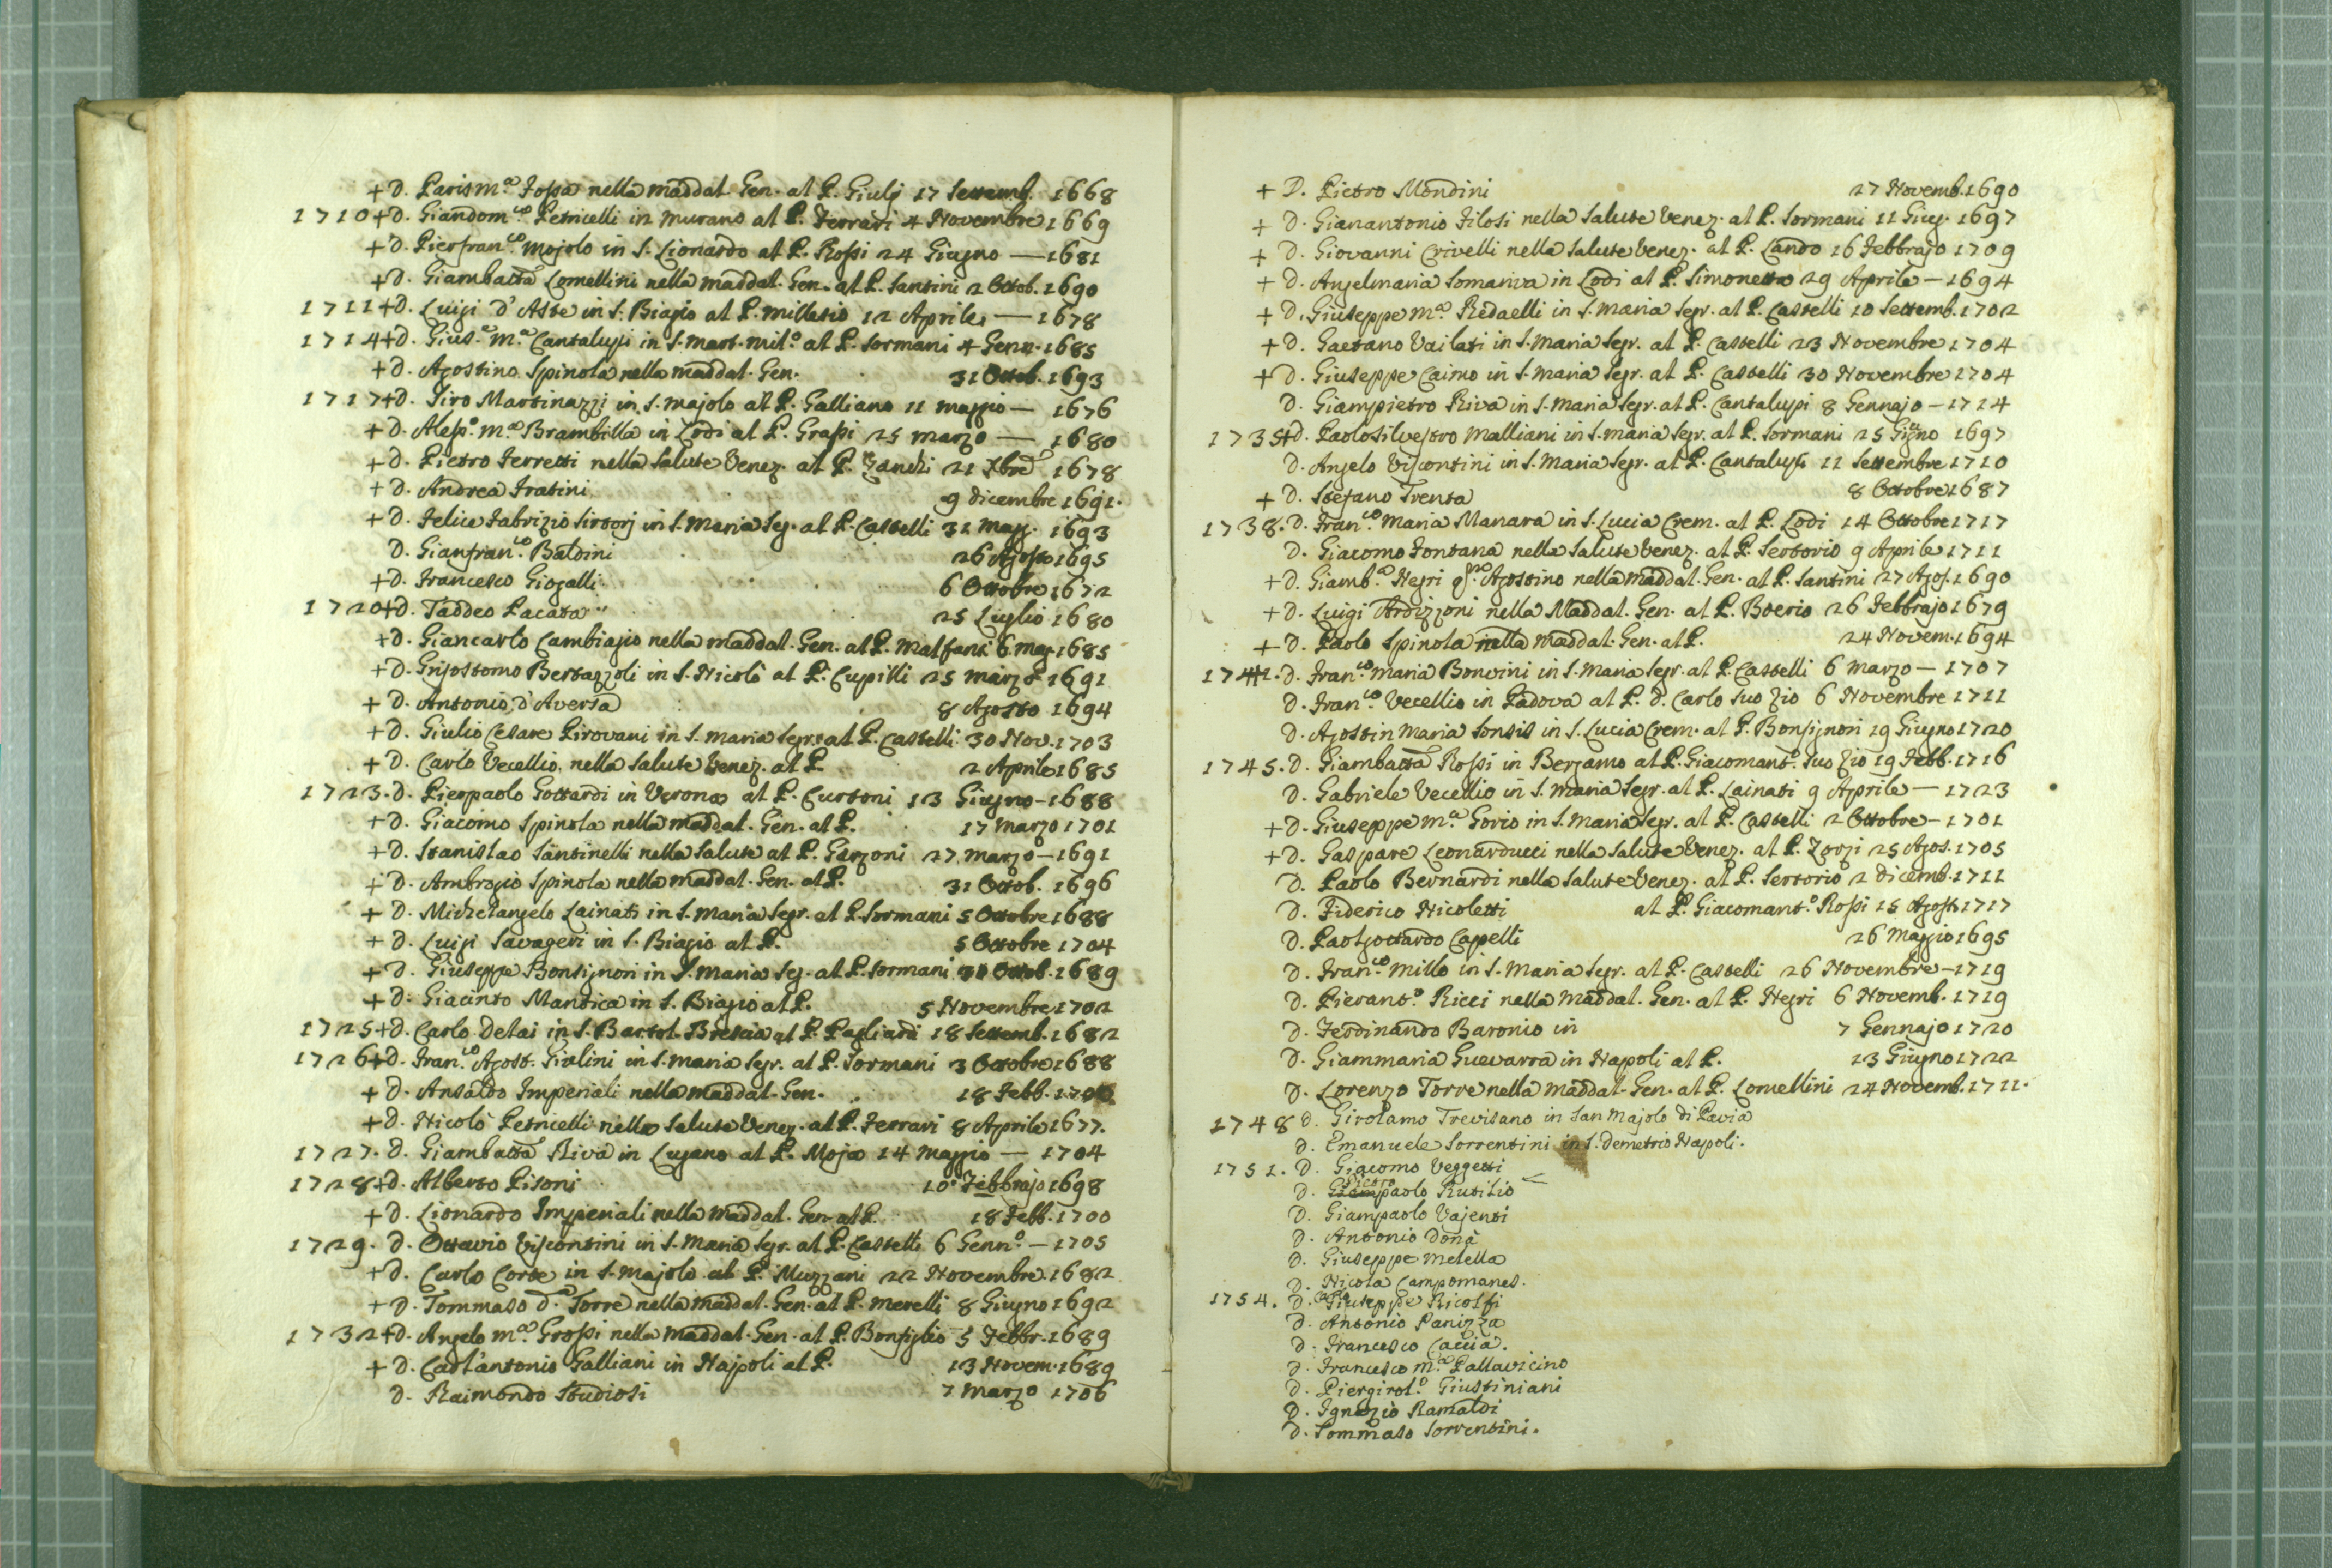 + D. Parism.ª Fossa nella Maddal. Gen. al P. Giulj 17 Settemb. 1668
1710 + D. Giandom.co Petricelli in Murano al P. Ferrari 4 Novembre 1669
+ D. Pierfran.co Mojolo in S. Lionardo al P. Rossi 24 Giugno — 1681
+ D. Giambatta Lomellini nella Maddal. Gen. al P. Santini 2 Ottob. 1690
1711 + D. Luigi d'Aste in S. Biagio al P. Milesio 12 Aprile — 1678
1714 + D. Gius.e M.ª Cantalupi in S. Mart. Mil.º al P. Sormani 4 Genn. 1685
+ D. Agostino Spinola nella Maddal. Gen. 31 Ottob. 1693
1717 + D. Siro Martinazzi in S. Majolo al P. Galliano 11 Maggio — 1676
+ D. Aless.º M.ª Brambilla in Lodi al P. Grassi 25 Marzo — 1680
+ D. Pietro Ferretti nella Salute Venez. al P. Zanchi 21 Xbre 1678
+ D. Andrea Fratini 9 Dicembre 1691.
+ D. Felice Fabrizio Sirtorj in S. Maria Seg. al P. Castelli 31 Magg. 1693
D. Gianfran.co Baldini 26 Agosto 1695
+ D. Francesco Giogalli 6 Ottobre 1672
1720 + D. Taddeo Pacata 25 Luglio 1680
+ D. Giancarlo Cambiagio nella Maddal. Gen. al P. Malfanti 6 Mag. 1685
+ D. Grisostomo Bertazzoli in S. Nicolò al P. Cupilli 25 Marzo 1691
+ D. Antonio d'Aversa 8 Agosto 1694
+ D. Giulio Cesare Pirovani in S. Maria Segr. al P. Castelli 30 Nov. 1703
+ D. Carlo Vecellio nella Salute Venez. al P. 2 Aprile 1685
1723. D. Pierpaolo Gottardi in Verona al P. Curtoni 13 Giugno — 1688
+ D. Giacomo Spinola nella Maddal. Gen. al P. 17 Marzo 1701
+ D. Stanislao Santinelli nella Salute al P. Gerzoni 27 Marzo — 1691
+ D. Ambrogio Spinola nella Maddal. Gen. al P. 31 Ottob. 1696
+ D. Michelangelo Lainati in S. Maria Segr. al P. Sormani 5 Ottobre 1688
+ D. Luigi Savageri in S. Biagio al P. 5 Ottobre 1704
+ D. Giuseppe Bonsignori in S. Maria Seg. al P. Sormani 31 Ottob. 1689
+ D. Giacinto Mantica in S. Biagio al P. 5 Novembre 1702
1725 + D. Carlo Delai in S. Bartol. Brescia al P. Pagliardi 18 Settemb. 1682
1726 + D. Fran.co Agost. Gialini in S. Maria Segr. al P. Sormani 3 Ottobre 1688
+ D. Ansaldo Imperiali nella Maddal. Gen. 18 Febb.
+ D. Nicolò Petricelli nella Salute Venez. al P. Ferrari 8 Aprile 1677.
1727. D. Giambatta Riva in Lugano al P. Moja 14 Maggio — 1704
1728 + D. Alberto Pisoni 10 Febbrajo 1698
+ D. Lionardo Imperiali nella Maddal. Gen. al P. 18 Febb. 1700
1729. D. Ottavio Viscontini in S. Maria Segr. al P. Castelli 6 Genn.º — 1705
+ D. Carlo Corte in S. Majolo al P. Muzzani 22 Novembre 1682
+ D. Tommaso d.ª Torre nella Maddal. Gen. al P. Merelli 8 Giugno 1692
1732 + D. Angelo M.ª Grossi nella Maddal. Gen. al P. Bonfiglio 5 Febbr. 1689
+ D. Carl'antonio Galliani in Napoli al P. 13 Novem. 1689
D. Raimondo Studiosi 7 Marzo 1706
+ D. Pietro Mondini 27 Novemb. 1690
+ D. Gianantonio Filosi nella Salute Venez. al P. Sormani 11 Giug. 1697
+ D. Giovanni Crivelli nella Salute Venez. al P. Lando 16 Febbrajo 1709
+ D. Angelmaria Somariva in Lodi al P. Simonetta 29 Aprile — 1694
+ D. Giuseppe M.ª Redaelli in S. Maria Segr. al P. Castelli 10 Settemb. 1702
+ D. Gaetano Vailati in S. Maria Segr. al P. Castelli 23 Novembre 1704
+ D. Giuseppe Caimo in S. Maria Segr. al P. Castelli 30 Novembre 1704
D. Giampietro Riva in S. Maria Segr. al P. Cantalupi 8 Gennajo — 1714
1735 + D. Paolosilvestro Malliani in S. Maria Segr. al P. Sormani 25 Giugno 1697
D. Angelo Viscontini in S. Maria Segr. al P. Cantalupi 11 Settembre 1710
+ D. Stefano Trenta 8 Ottobre 1687
1738. D. Fran.co Maria Manara in S. Lucia Crem. al P. Lodi 14 Ottobre 1717
D. Giacomo Fontana nella Salute Venez. al P. Sertorio 9 Aprile 1711
+ D. Giamb.ª Negri Agostino nella Maddal. Gen. al P. Santini 27 Agos. 1690
+ D. Luigi Ardizzoni nella Maddal. Gen. al P. Boerio 26 Febbrajo 1679
+ D. Paolo Spinola nella Maddal. Gen. al P. 24 Novem. 1694
D. Fran.co Maria Bonvini in S. Maria Segr. al P. Castelli 6 Marzo — 1707
D. Fran.co Vecellio in Padova al P. D. Carlo suo Zio 6 Novembre 1711
D. Agostin Maria Sonsis in S. Lucia Crem. al P. Bonsignori 19 Giugno 1720
1745. D. Giambatta Rossi in Bergamo al P. Giacomant.º suo Zio 19 Febb. 1716
D. Gabriele Vecellio in S. Maria Segr. al P. Lainati 9 Aprile — 1723
+ D. Giuseppe M.ª Gorio in S. Maria Segr. al P. Castelli 2 Ottobre — 1701
+ D. Gaspare Leonarducci nella Salute Venez. al P. Zorzi 25 Agos. 1705
D. Paolo Bernardi nella Salute Venez. al P. Sertorio 2 Dicemb. 1711
D. Fiderico Nicoletti al P. Giacomant.º Rossi 15 Agost. 1717
D. Paolgottardo Capelli 26 Maggio 1695
D. Fran.co Millo in S. Maria Segr. al P. Castelli 26 Novembre — 1719
D. Pierant.º Ricci nella Maddal. Gen. al P. Negri 6 Novemb. 1719
D. Ferdinando Baronio in 7 Gennajo 1720
D. Giammaria Guevarra in Napoli al P. 13 Giugno 1722
D. Lorenzo Torre nella Maddal. Gen. al P. Lomellini 24 Novemb. 1711.
1748 D. Girolamo Trevisano in San Majolo di Pavia
D. Emanuele Sorrentini in S. Demetrio Napoli.
1751. D. Giacomo Veggetti
D. Pietropaolo Rutilio
D. Giampaolo Vajenti
D. Antonio Donà
D. Giuseppe Metella
D. Nicola Campomanes.
1754. D. Carlo Giuseppe Ricolfi
D. Antonio Panizza
D. Francesco Caccia.
D. Francesco M.ª Pallavicino
D. Piergirol.º Giustiniani
D. Ignazio Ramaldi
D. Tommaso Sorrentini.